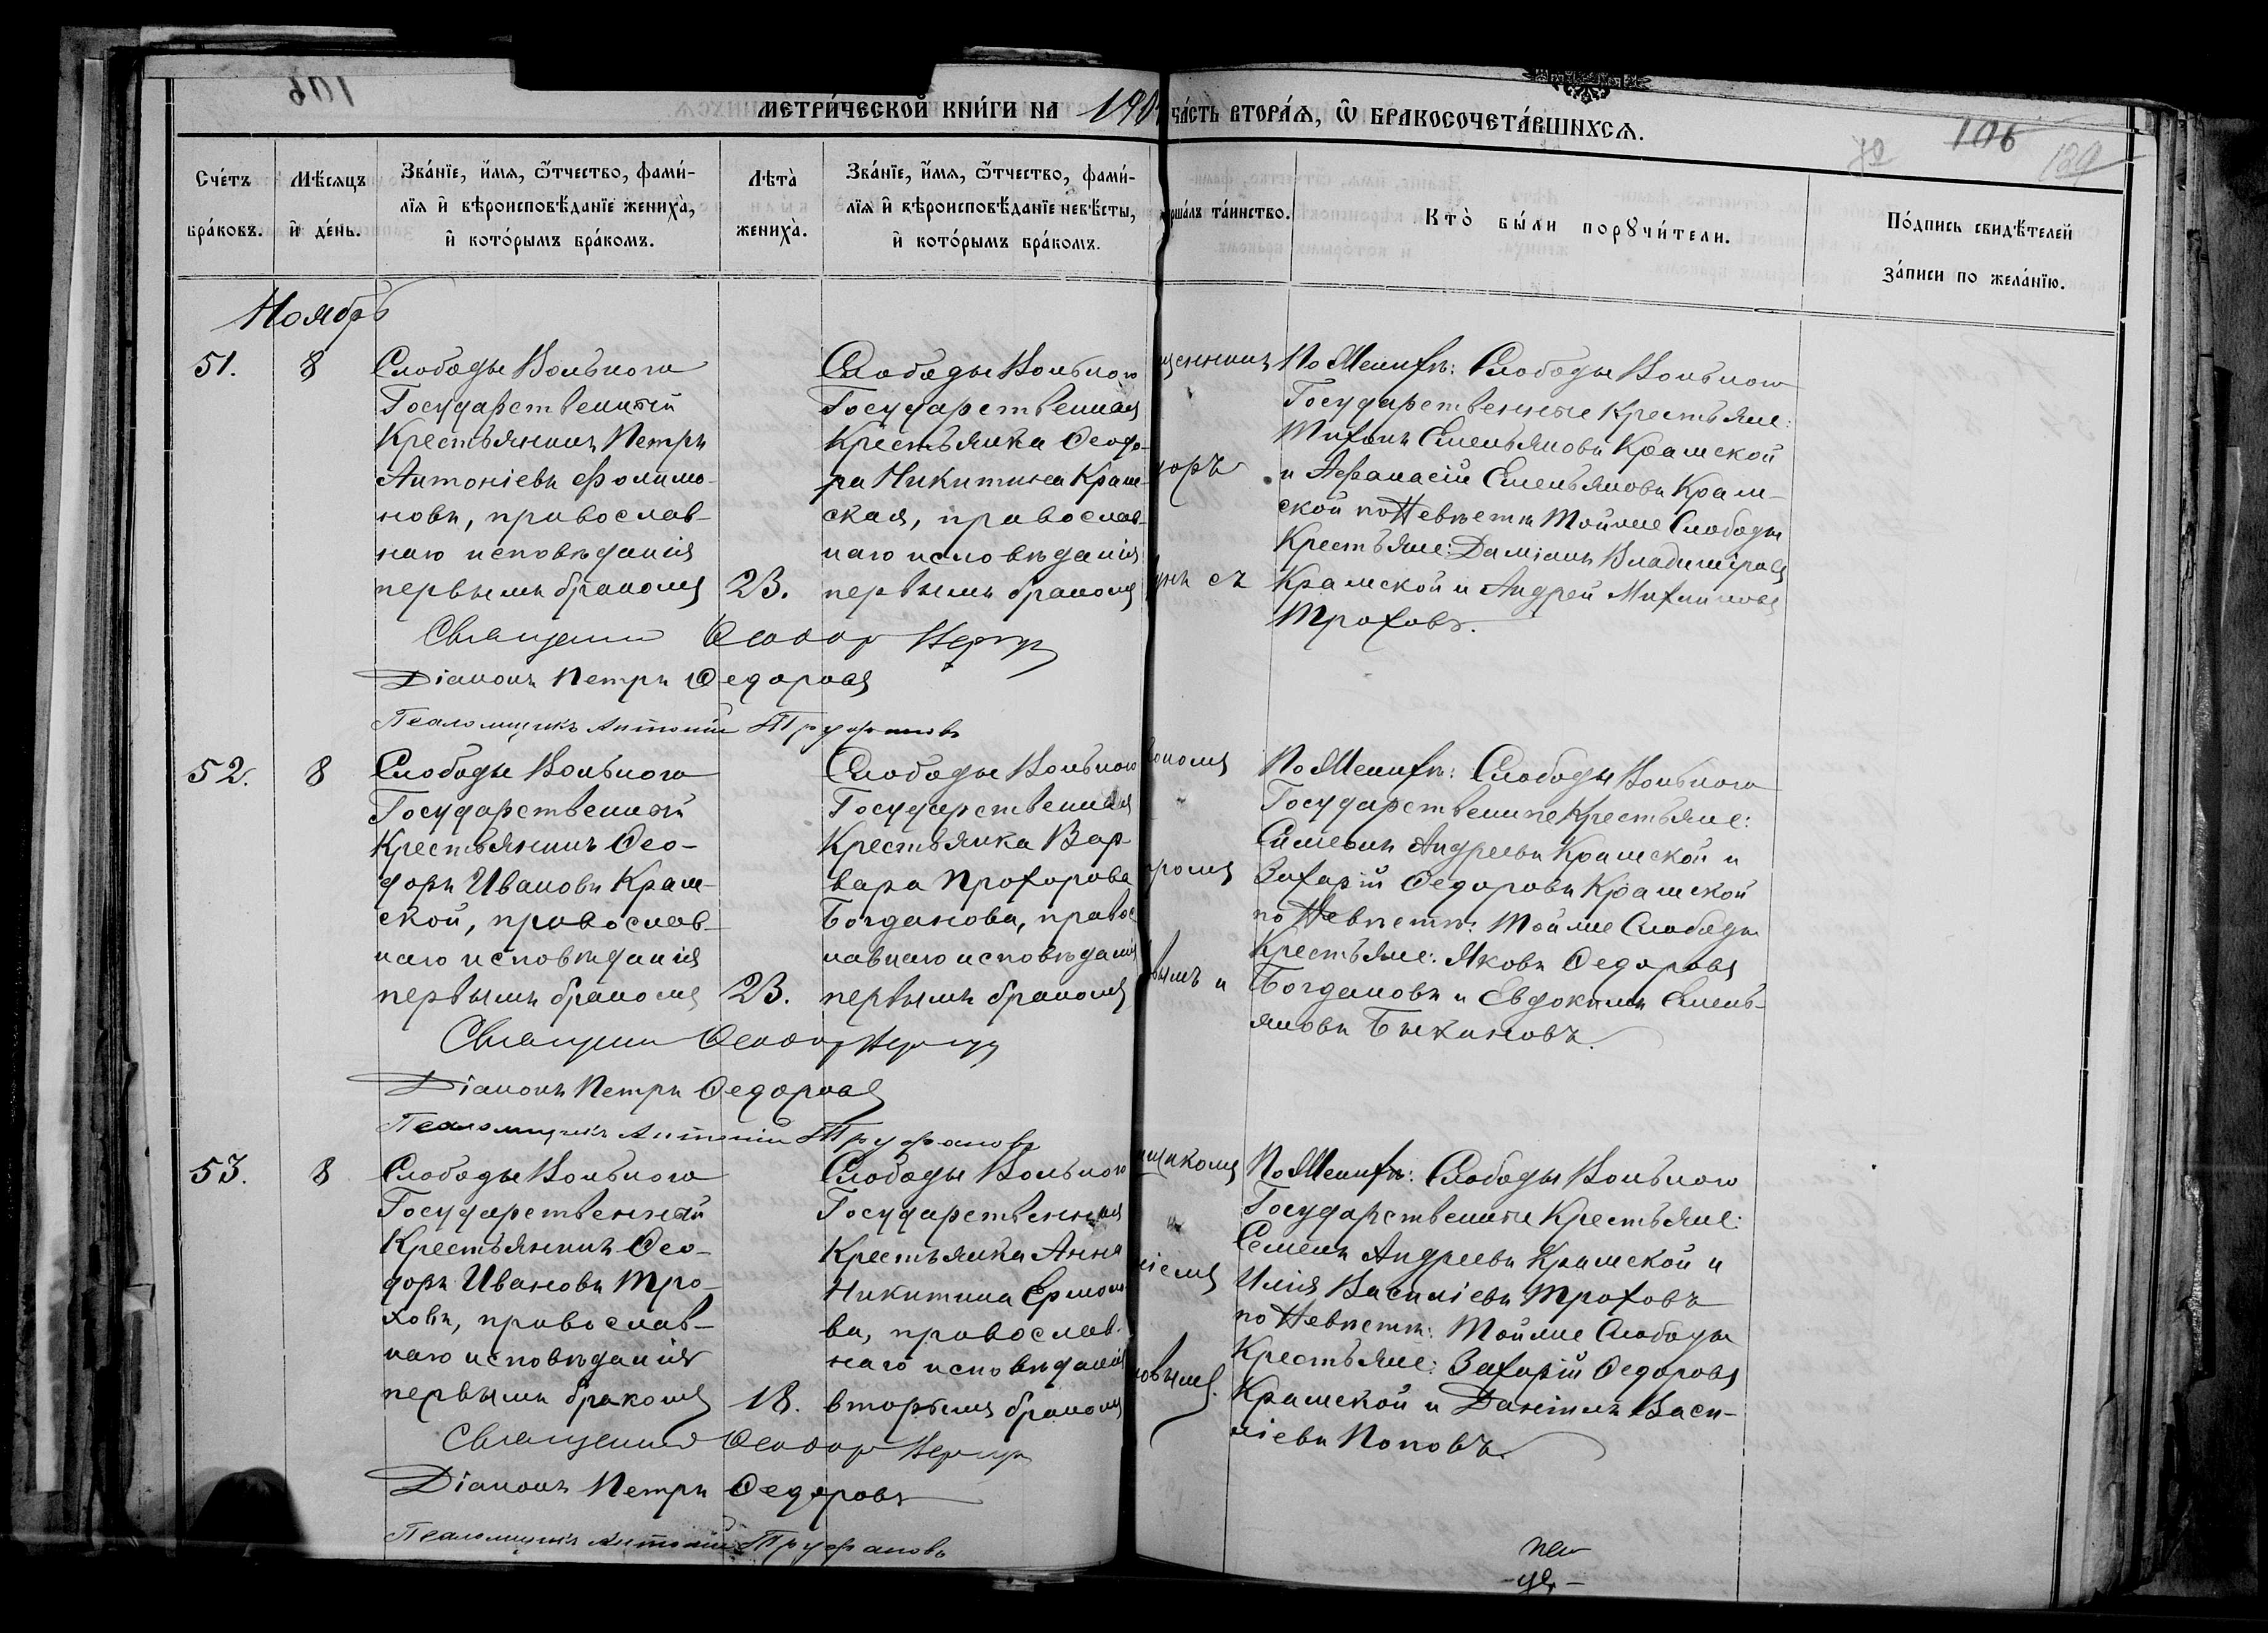 106
МЕТРИ́ЧЕСКОЙ КНИ́ГИ НА 190
ЧА́СТЬ ВТОРА́Ѧ, Ѽ БРАКОСОЧЕТА́ВШИХСѦ.
106
129
Сче́тъ
бра́ковъ.
Мѣ́сѧцъ
и҆ де́нь.
Зва́нїе, и҆́мѧ, ѻ҆́тчество, фами́-
лїѧ и҆ вѣроисповѣ́данїе жениха̀,
и҆ кото́рымъ бра́комъ.
Лѣта̀
жениха̀.
Зва́нїе, и҆́мѧ, ѻ҆́тчество, фами́-
лїѧ и҆ вѣроисповѣ́данїе невѣ́сты,
и҆ кото́рымъ бра́комъ.
рша́лъ та́инство.
Кто̀ бы́ли порꙋчи́тели.
По́дпись свидѣ́телей
за́писи по жела́нїю.
Ноябрь
51.
8
Слободы Вольного
Государственный
Крестьянинъ Петръ
Антоніевъ Филимо-
новъ, православ-
наго исповѣданія
первымъ бракомъ
23.
Слободы Вольного
Государственная
Крестьянка Ѳеодо-
ра Никитина Крам-
ская, православ-
наго исповѣданія
первымъ бракомъ
щенникъ
доръ
съ
По Женихѣ: Слободы Вольного
Государственные Крестьяне:
Тихонъ Емельяновъ Крамской
и Афанасій Емельяновъ Крам-
ской по Невѣстѣ Тойже Слободы
Крестьяне: Даміанъ Владиміровъ
Крамской и Андрей Михайловъ
Трофовъ.
Священникъ Ѳеодоръ
Діаконъ Петръ Ѳедоровъ
Псаломщикъ Антоній Труфановъ
52.
8
Слободы Вольного
Государственный
Крестьянинъ Ѳео-
доръ Ивановъ Крам-
ской, православ-
наго исповѣданія
первымъ бракомъ
23.
Слободы Вольного
Государственная
Крестьянка Вар-
вара Прохорова
Богданова, правос
лавнаго исповѣданія
первымъ бракомъ
кономъ
тромъ
вымъ и
По Женихѣ: Слободы Вольного
Государственные Крестьяне:
Симеонъ Андреевъ Крамской и
Захарій Ѳедоровъ Крамской
по Невѣстѣ: Тойже Слободы
Крестьяне: Яковъ Ѳедоровъ
Богдановъ и Евдокимъ Емель-
яновъ Быкановъ.
Священникъ Ѳеодоръ
Діаконъ Петръ Ѳедоровъ
Псаломщикъ Антоній Труфановъ
53.
8
Слободы Вольного
Государственный
Крестьянинъ Ѳео-
доръ Ивановъ Тро-
ховъ, православ-
наго исповѣданія
первымъ бракомъ
18.
Слободы Вольного
Государственная
Крестьянка Анна
Никитина Ермоло
ва, православ-
наго исповѣданія
вторымъ бракомъ
щикомъ
ніемъ
новымъ.
По Женихѣ: Слободы Вольного
Государственные Крестьяне:
Семенъ Андреевъ Крамской и
Илія Василіевъ Троховъ
по Невѣстѣ: Тойже Слободы
Крестьяне: Захарій Ѳедоровъ
Крамской и Даніилъ Васи-
ліевъ Поповъ.
Священникъ Ѳеодоръ
Діаконъ Петръ Ѳедоровъ
Псаломщикъ Антоній Труфановъ